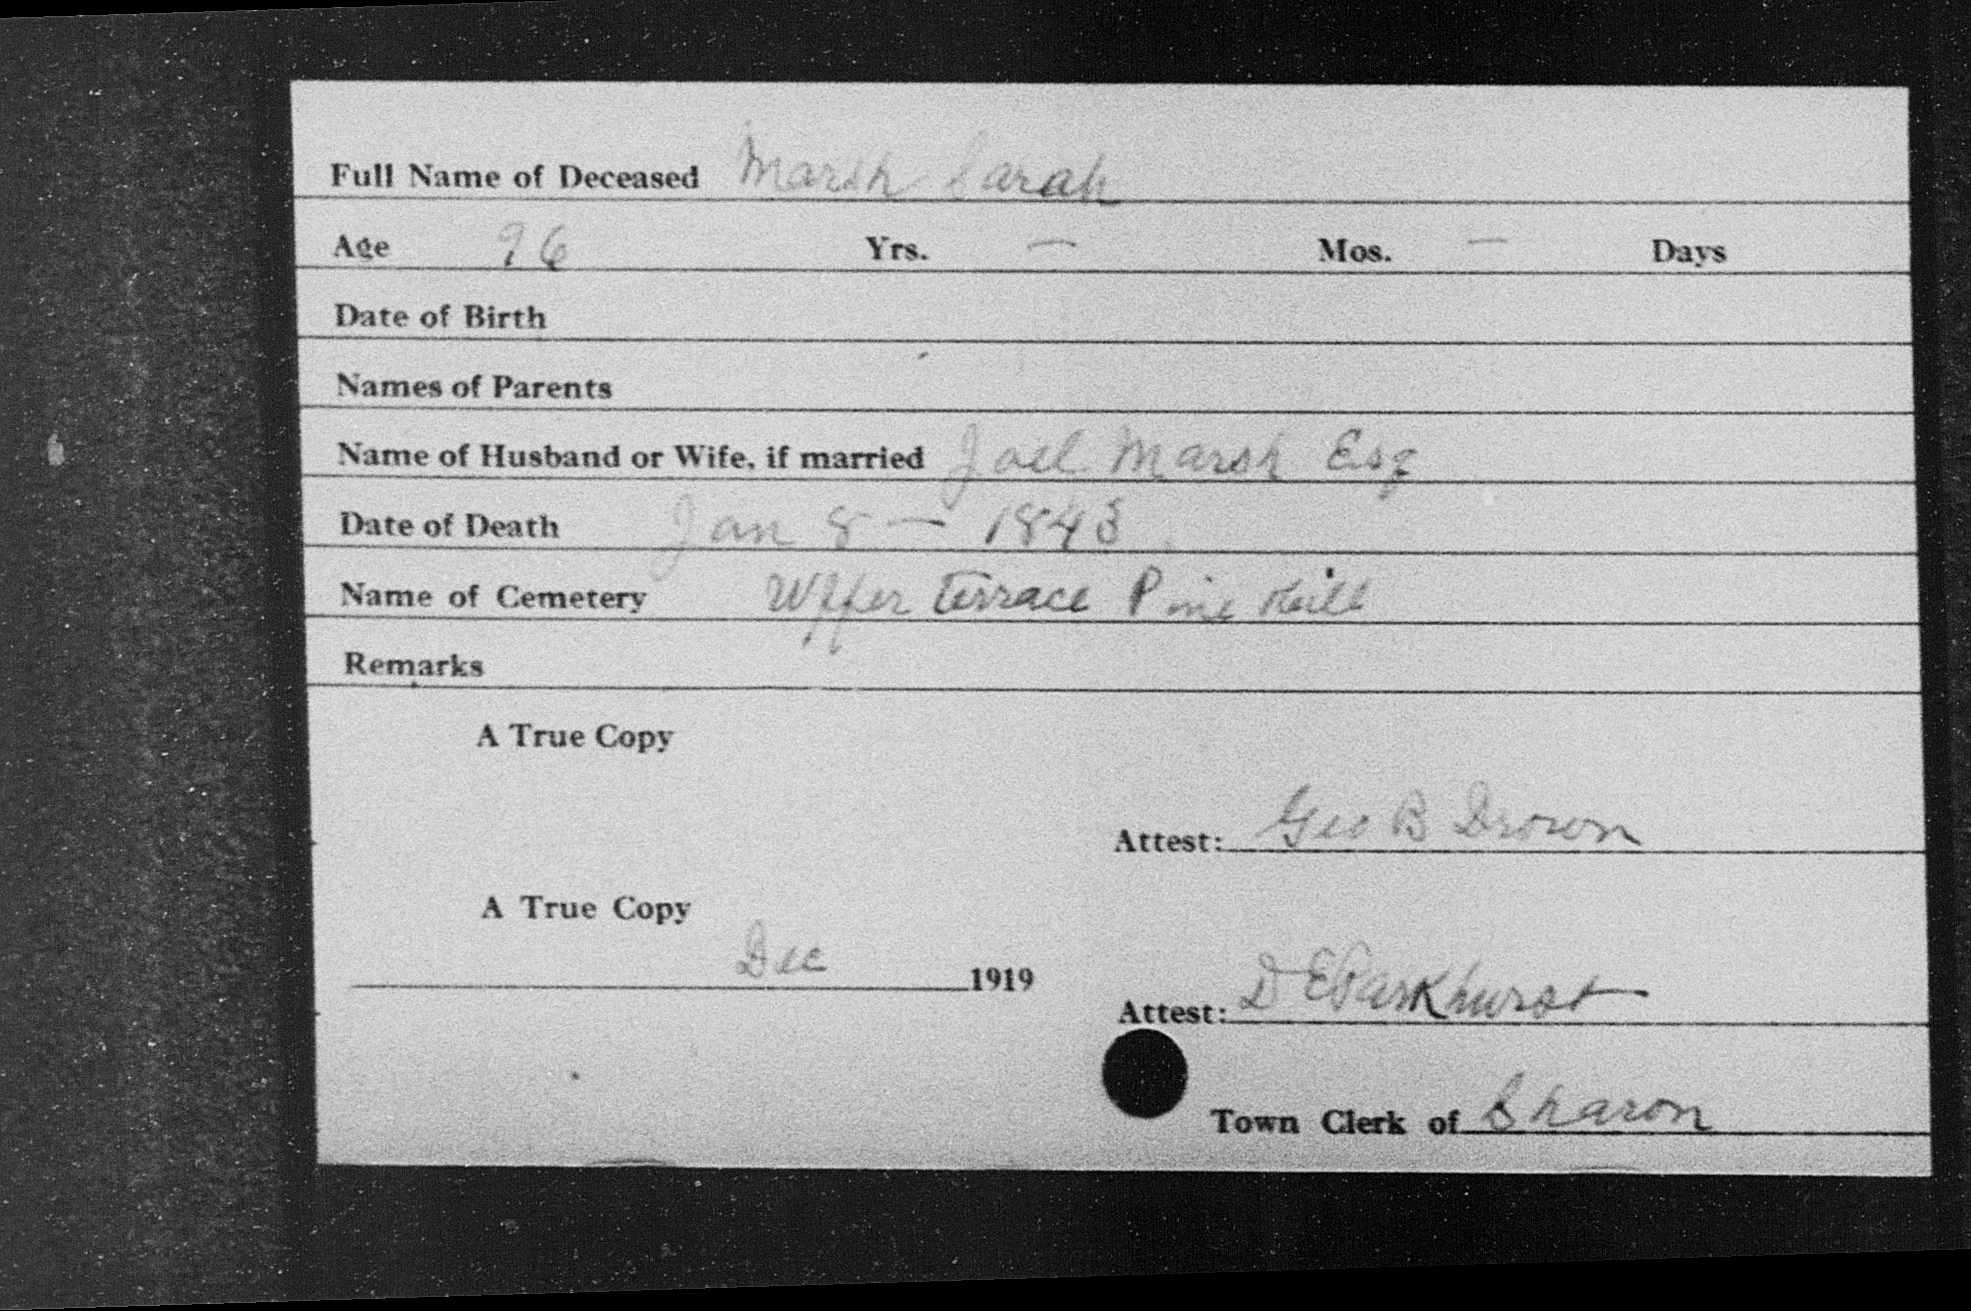 Full Name of Deceased Marsh Sarah
Age 96 Yrs. — Mos. — Days
Date of Birth
Names of Parents
Name of Husband or Wife, if married Joel Marsh Esq
Date of Death Jan 8 — 1843
Name of Cemetery Upper Terrace Pine Hill
Remarks
A True Copy
Attest: Geo B Drown
A True Copy
Dec 1919
Attest: D E Parkhurst
Town Clerk of Sharon